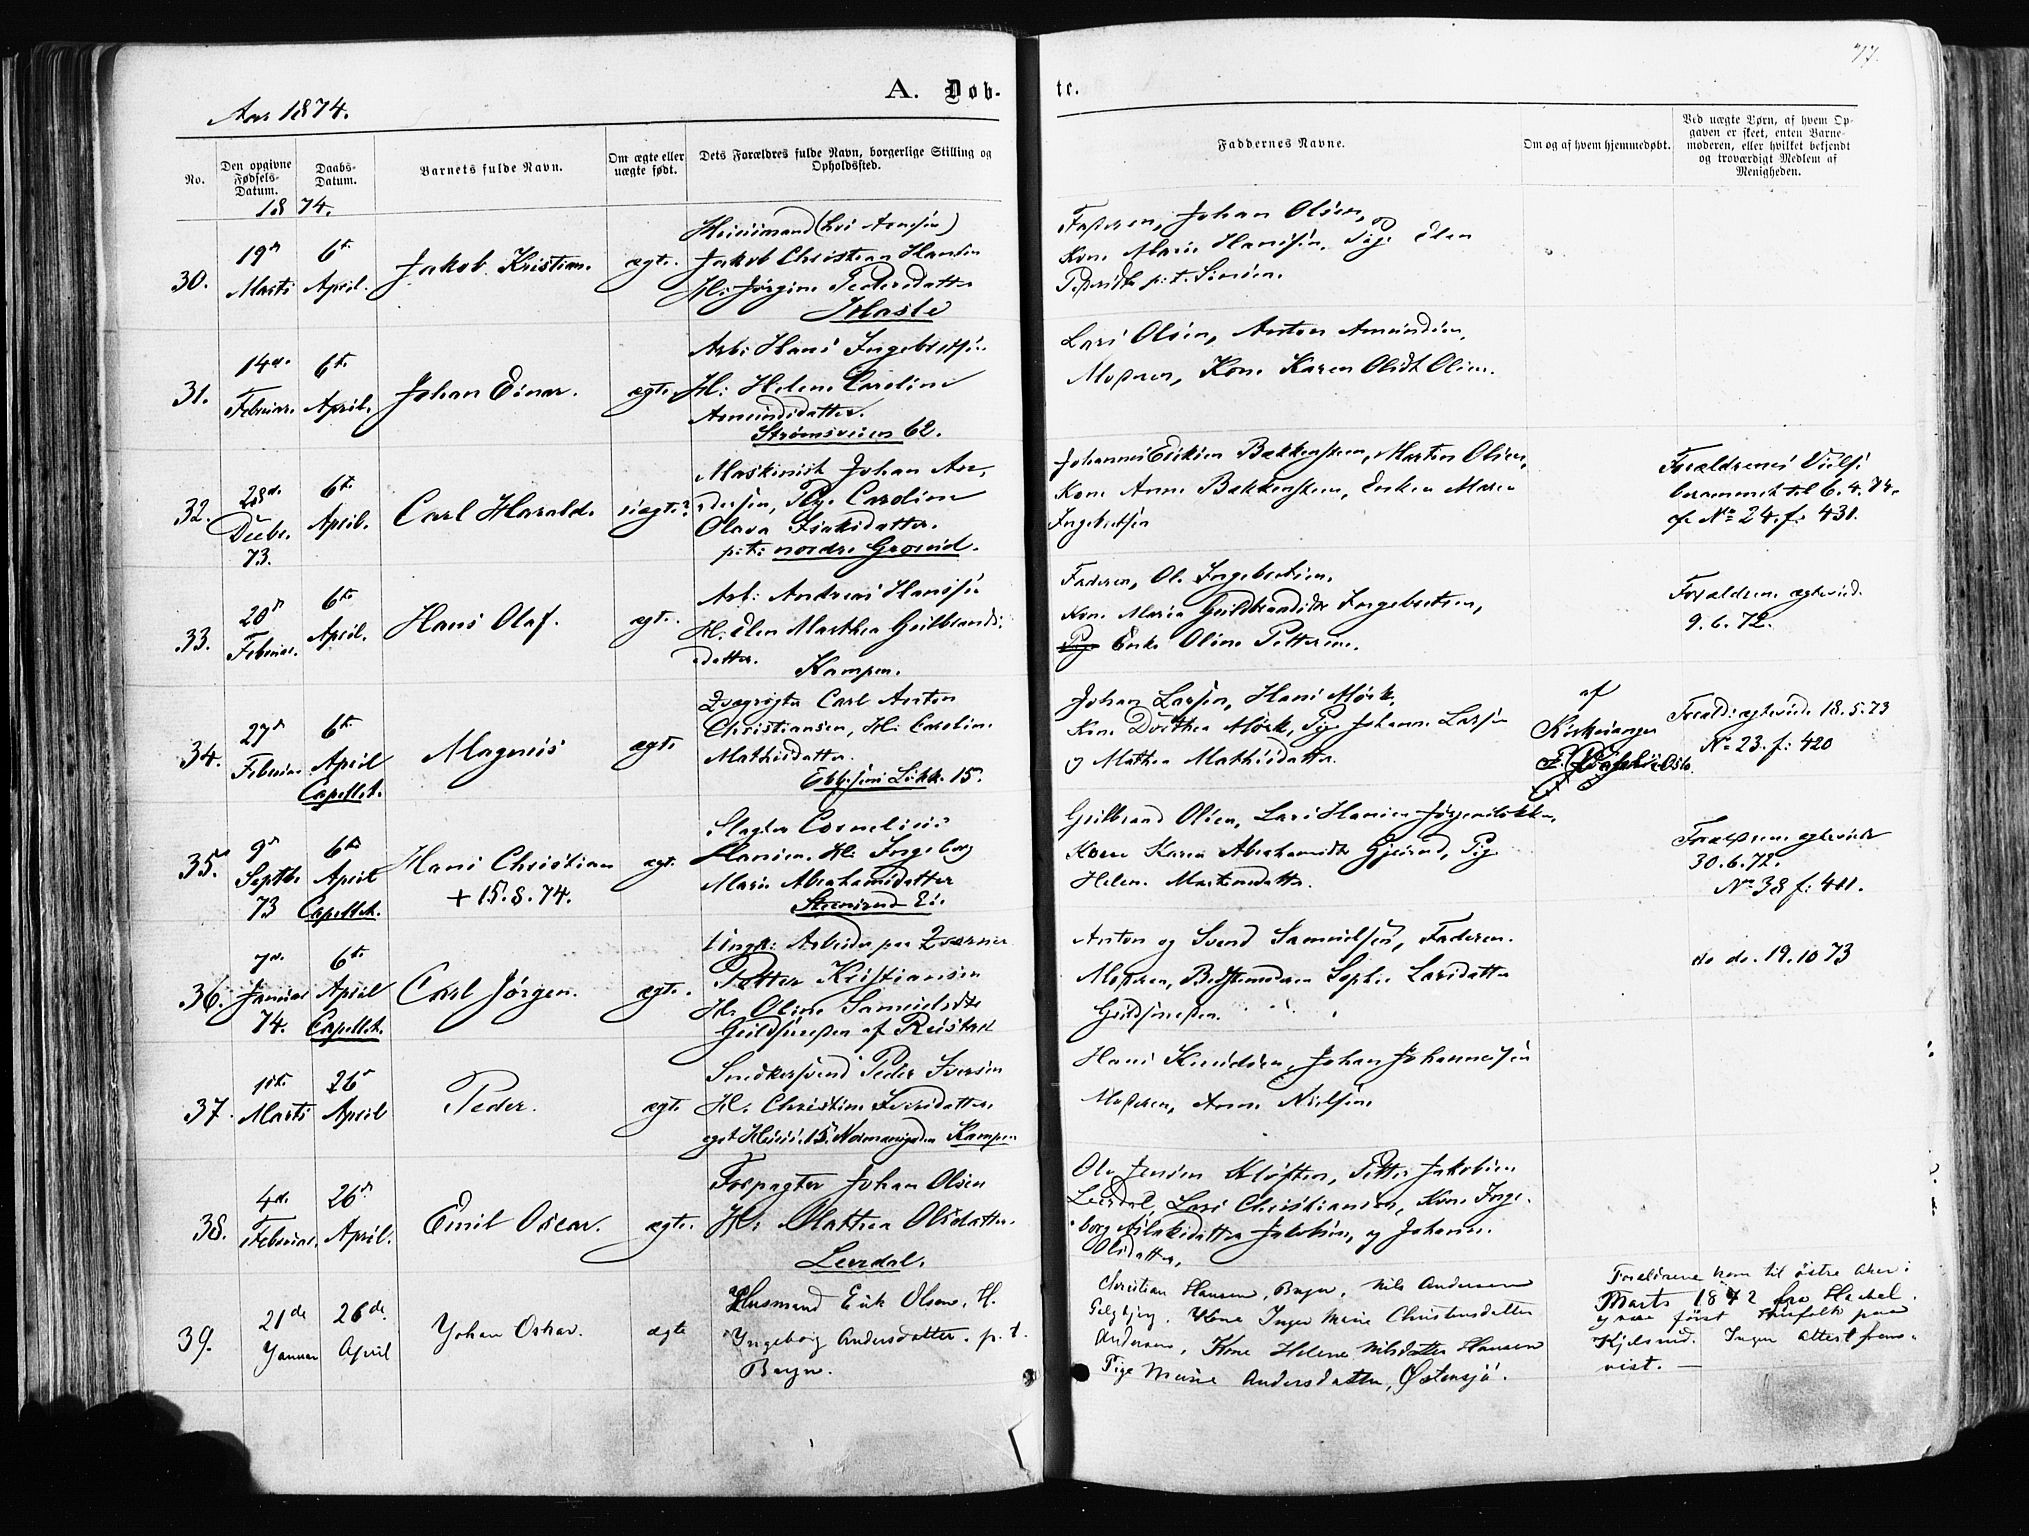 77.
Aar 1874.
A. Døb-
te.
No.
Den opgivne Fødsels-Datum.
Daabs-Datum.
Barnets fulde Navn.
Om ægte eller uægte født.
Dets Forældres fulde Navn, borgerlige Stilling og Opholdssted.
Faddernes Navne.
Om og af hvem hjemmedøbt.
Ved uægte Børn, af hvem Op-
gaven er skeet, enten Barne-
moderen, eller hvilket bekjendt
og troværdigt Medlem af
Menigheden.
1874.
30.
19de Marts
6te April.
Jakob Kristian.
ægte.
Huusmand
Jakob Christian Hansen
H: Jørgine Pedersdatter
Hasle
Fasteren, Johan Olsen,
Kone Marie Hansen, Pige Elen
31.
14de Februar.
6te April.
Johan Einar.
ægte.
Arb: Hans Ingebretsen
H: Helene Caroline
Amundsdatter.
Strømsveien 62.
Lars Olsen, Anton Amundsen,
Moderen, Kone Karen Olsdt Olsen.
32.
28de Decbr. 73.
6te April.
Carl Harald.
uægte?
Maskinist Johan An-
dersen, Pige Caroline
Olava Isaksdatter.
p:t: nordre Grosrud.
Johannes Eriksen Bakkensteen, Martin Olsen,
Kone Anne Bakkensteen, Enken Maren
Ingebretsen
Forældrenes Viels.
berammet til 6.4.74.
cfr No 24. f: 431.
33.
20de Februar.
6te April.
Hans Olaf.
ægte.
Arb: Andreas Hanssen
H: Elen Marthea Gulbrands-
datter.
Kampen.
Faderen, Ole Ingebretsen.
Kone Maria Gulbrandsdtr Ingebretsen,
Pige Enke Oline Pettersen.
Forældrene ægteviede
9.6.72.
34.
27de Februar
6te April
Capellet.
Magnus
ægte
Carl Anton
Christiansen, H: Caroline
Mathisdatter.
Ebbesens Løkke 15.
Johan Larsen, Hans Mørk,
Kone Dorthea Mørk, Pige Johanne Larsen
og Mathea Mathisdatter.
af
Kirkesanger
Oslo.
Foræld: ægteviede 18.5.73
No 23. f: 420
35.
9de Septbr. 73
6te April
Capellet.
Hans Christian
+ 15.8.74.
ægte
Slagter Cornelius
Hansen. H: Ingeborg
Marie Abrahamsdatter
Gulbrand Olsen, Lars Hansen Jørgensløkken,
Kone Karen Abrahamsdtr, Pige
Helene Martinsdatter.
Forældrene ægteviede
30.6.72.
No 38 f: 411.
36.
7de Januar 74.
6te April
Capellet.
Carl Jørgen.
ægte.
Ungk: Arbeider paa Qværner
Petter Kristiansen
H: Oline Samuelsdtr
Anton og Svend Samuelsen, Faderen.
Moderen, Bedstemoderen Sophie Larsdatter
do do. 19.10 73
37.
10de Marts
26de April
Peder.
ægte
Snedkersvend Peder Iversen
H: Christine Iversdatter
eget Huus. 15. Normansgaden Kampen
Hans Knudsen, Johan Johannesen
Moderen, Anne Nielsen
38.
4de Februar.
26de April.
Emil Oscar.
ægte.
Forpagter Johan Olsen
H: Mathea Olsdatter.
Leerdal.
Ole Jensen Kløften, Petter Jakobsen
Leerdal, Lars Christiansen, Kone Inge-
borg Aslaksdatter Jakobsen, og Johanne
Olsdatter,
39.
21de Januar
26de April
Johan Oskar.
ægte
Husmand Erik Olsen, H.
Ingeborg Andersdatter. p.t.
Bryn.
Christian Hansen, Bryn, Nils Andersen
Kone Inger Marie Christensdatter
Andersen, Kone Helene Nilsdatter Hansen
Pige Marie Andersdatter, Østensjø.
Forældrene kom til østre Aker i
Marts 1872 fra Hackel.
og vare først Husfolk paa
Kjelsrud. Ingen attest frem-
vist. —